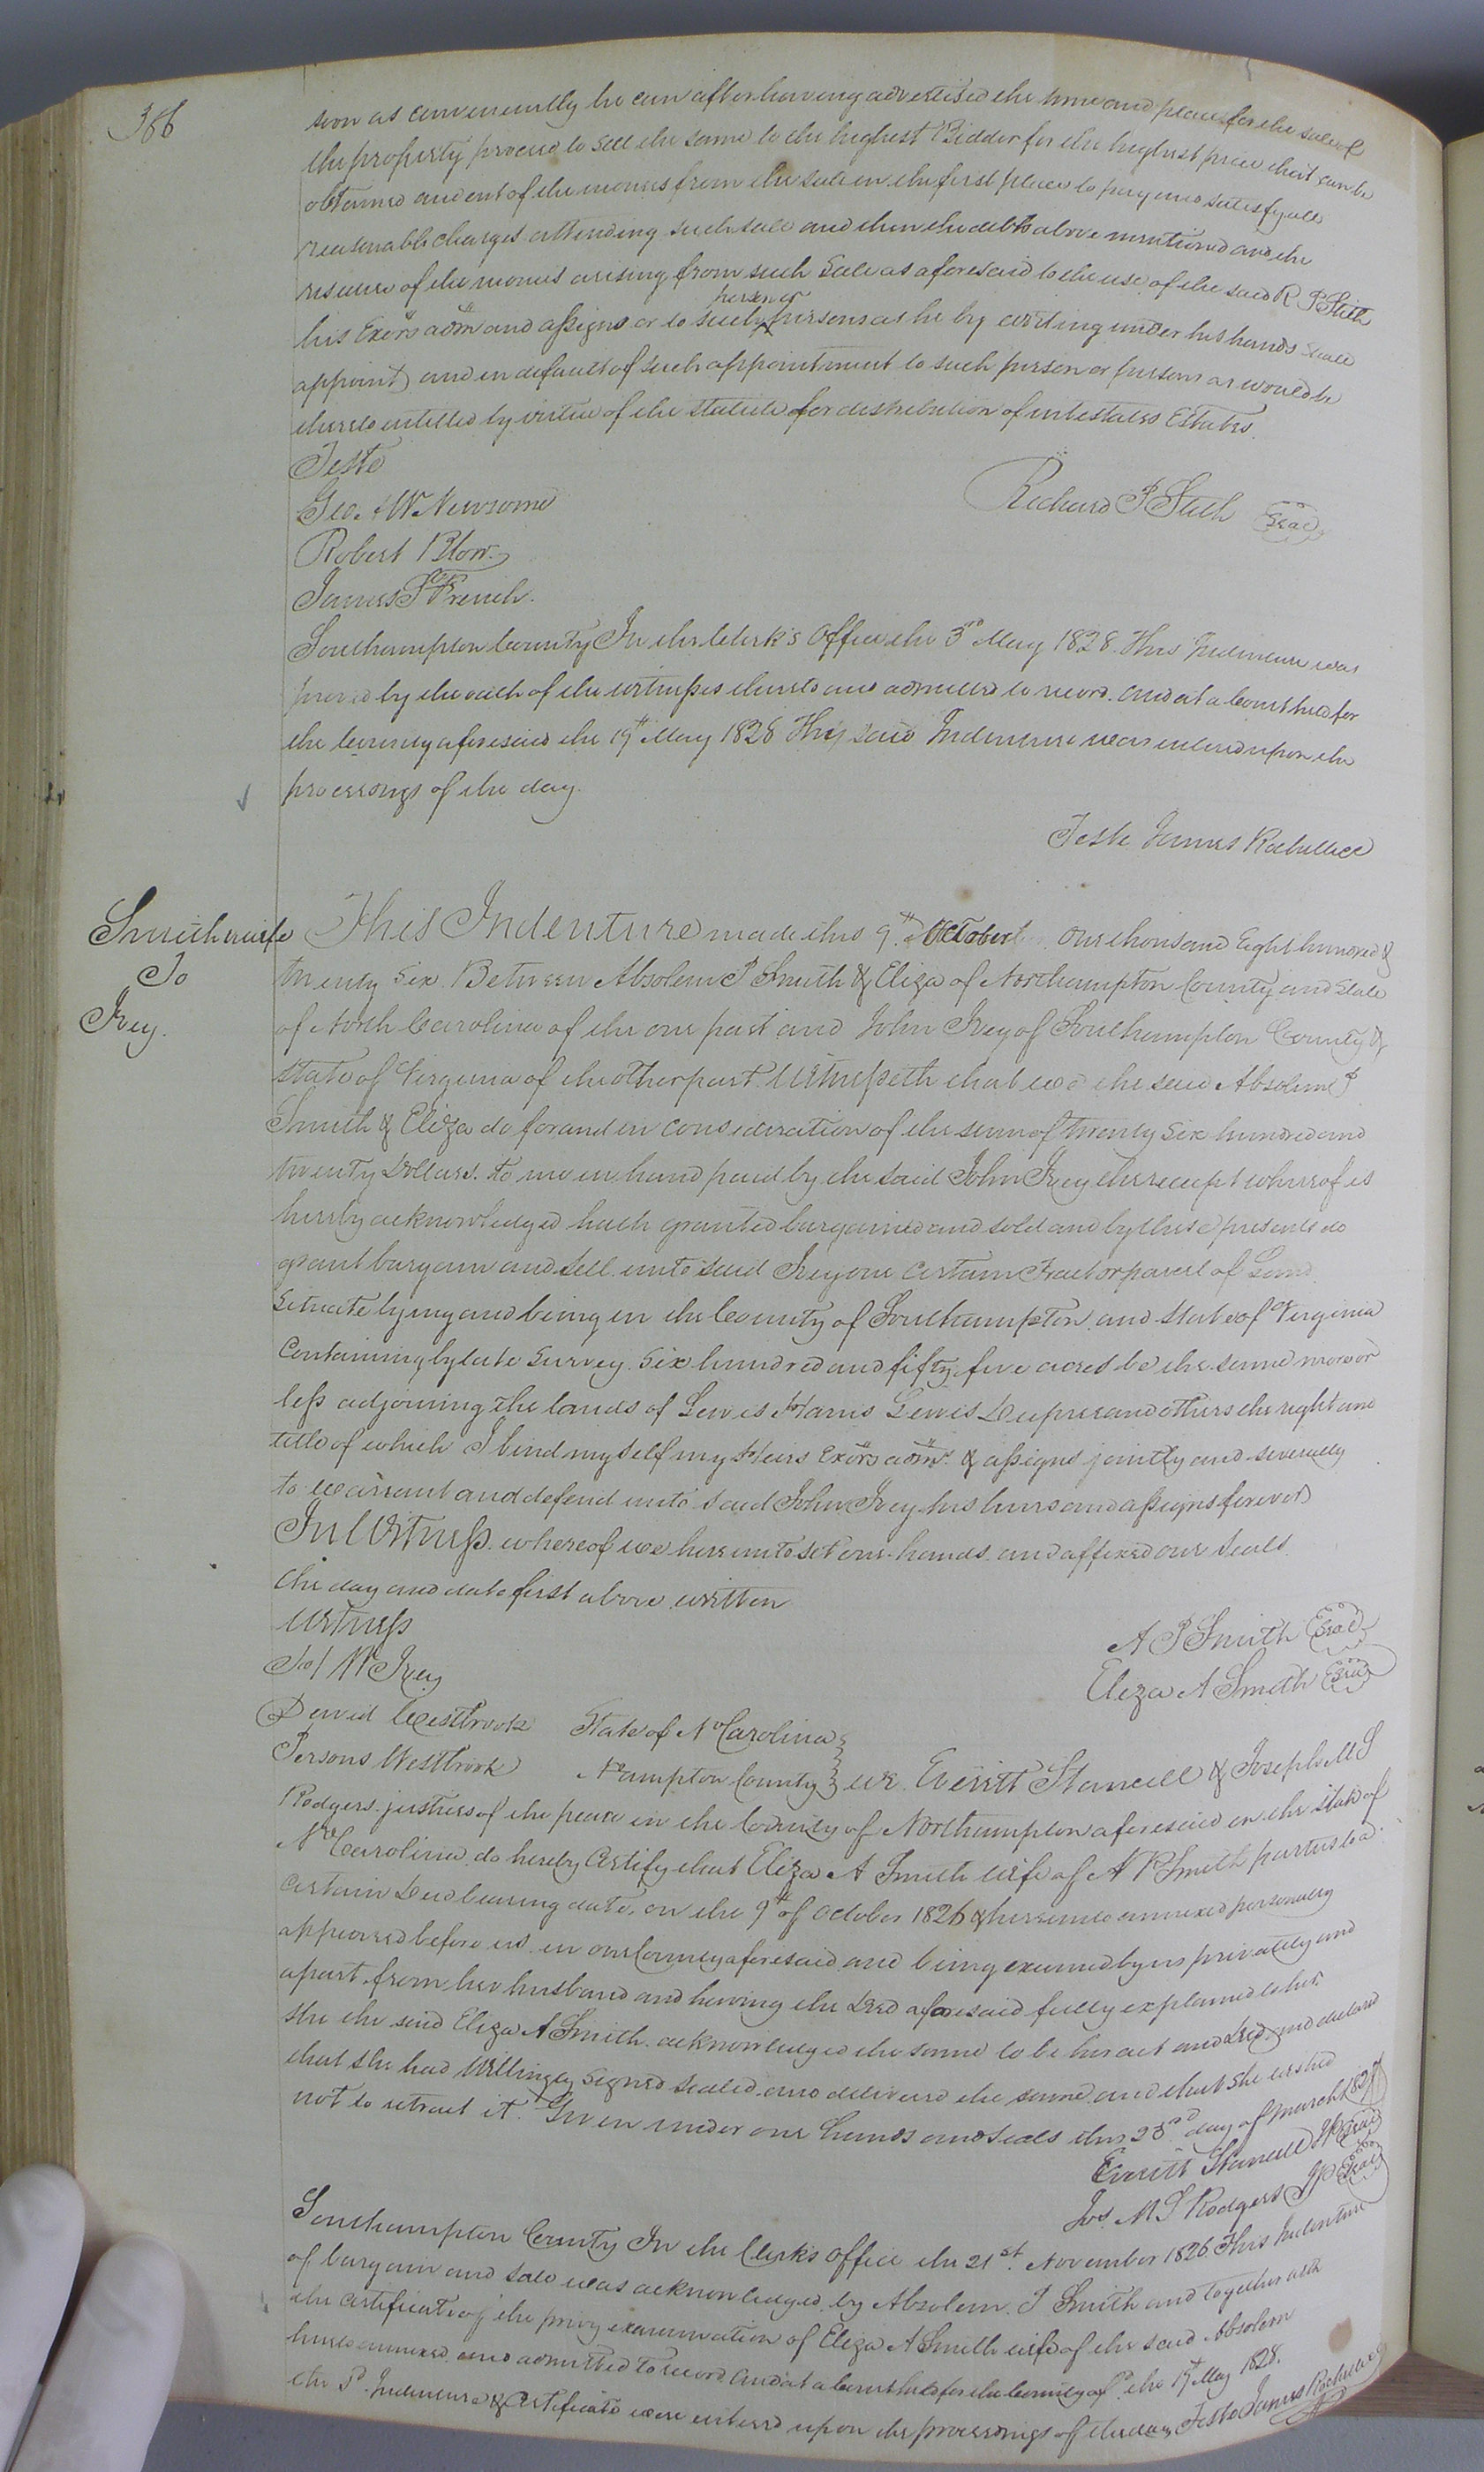 386
soon as conveniently he can after having advertised the time and place for the sale of
the property proceed to sell the same to the highest Bidder for the highest price that can be
obtained and out of the monies from the sale in the first place to pay and satisfy all
reasonable charges attending such sale and then the debts above mentioned and the
residue of the monies arising from such Sale as aforesaid to the use of the said R. P Stith
person or
his Exors adm and assigns or to such ^ persons as he by writing under his hands shall
appoint, and in default of such appointment to such person or persons as would be
thereto intitled by virtue of the statute for distribution of intestates Estates.
Teste
Geo. W Newsome
Richard P Stith Seal
Robert Blow
James French.
Southampton County In the Clerk's Office the 3rd May 1828. This Indenture was
proved by the oath of the witnesses thereto and admitted to record. And at a Court held for
the County aforesaid the 19th May 1828 This said Indenture was entered upon the
proceedings of the day.
Teste James Rochelle
Smith & wife
To
Ivey.
This Indenture made this 9th October One thousand Eight hundred &
twenty Six Between Absolem P Smith & Eliza of Northampton County and State
of North Carolina of the one part and John Ivey of Southampton County &
state of Virginia of the other part Witnesseth that we the said Absolem P
Smith & Eliza do for and in consideration of the sum of twenty six hundred and
twenty Dollars. to me in hand paid by the said John Ivey the receipt whereof is
hereby acknowledged hath granted bargained and sold and by these presents do
grant bargain and sell unto said Ivey one certain Tract or parcel of Land
Situate lying and being in the County of Southampton and State of Virginia
Containing by late Survey Six hundred and fifty five acres be the same more or
less adjoining the lands of Lewis Harris Lewis Dupree and others the right and
title of which I bind myself my Heirs Exors adms. & assigns jointly and severally
to warrant and defend unto said John Ivey his heirs and assigns forever
In Witness whereof we hereunto set our hands and affixed our Seals
the day and date first above written
Witness
A P Smith Seal
W Ivey
Eliza A Smith Seal
David Westbrook State of No Carolina
Persons Westbrook N.ampton County We Everitt Stancell & Joseph M S
Rodgers justices of the peace in the County of Northampton aforesaid in the State of
No Carolina do hereby Certify that Eliza A Smith wife of A P Smith parties to a
certain Deed bearing date, on the 9th of October 1826 & hereunto annexed personally
appeared before us in our County aforesaid and being examined by us privately and
apart from her husband and having the Deed aforesaid fully explained to her.
she the said Eliza A Smith acknowledged the same to be her act and deed and declared
that she had Willingly Signed Sealed and delivered the same and that she wished
not to retract it. Given under our hands and seals this 23rd day of March 1827
Everitt Stancell JP Seal
Jos. M S Rodgers JP Seal
Southampton County In the Clerk's office the 21st. November 1826 This Indenture
of bargain and sale was acknowledged by Absolem P Smith and together with
the Certificate of the privy examination of Eliza A Smith wife of the said Absolem
hereto annexed and admitted to record And at a Court held for the County afsd the 19th May 1828.
the Sd Indenture & Certificate were entered upon the proceedings of the day Teste James Rochelle